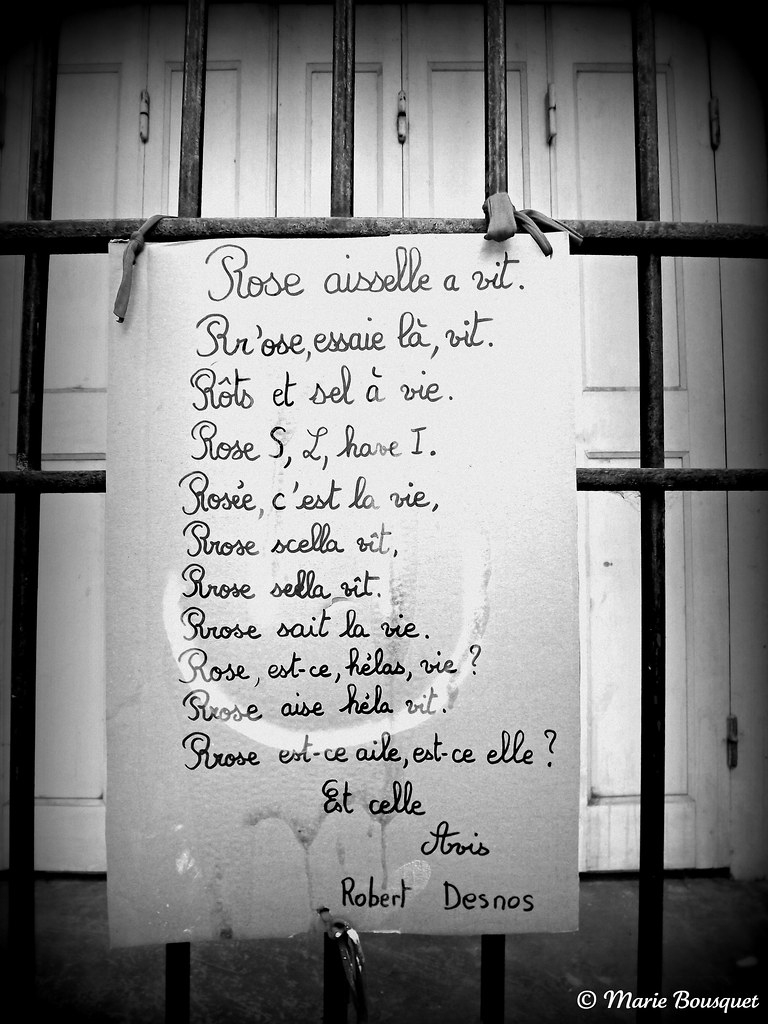 Rose aisselle a vit.
Rr'ose, essaie là, vit.
Rôts et sel à vie.
Rose S, L, have I.
Rosée, c'est la vie,
Rrose scella vît,
Rrose sella vît.
Rrose sait la vie.
Rose, est-ce, hélas, vie ?
Rrose aise héla vit.
Rrose est-ce aile, est-ce elle ?
Est celle
Avis
Robert Desnos
© Marie Bousquet